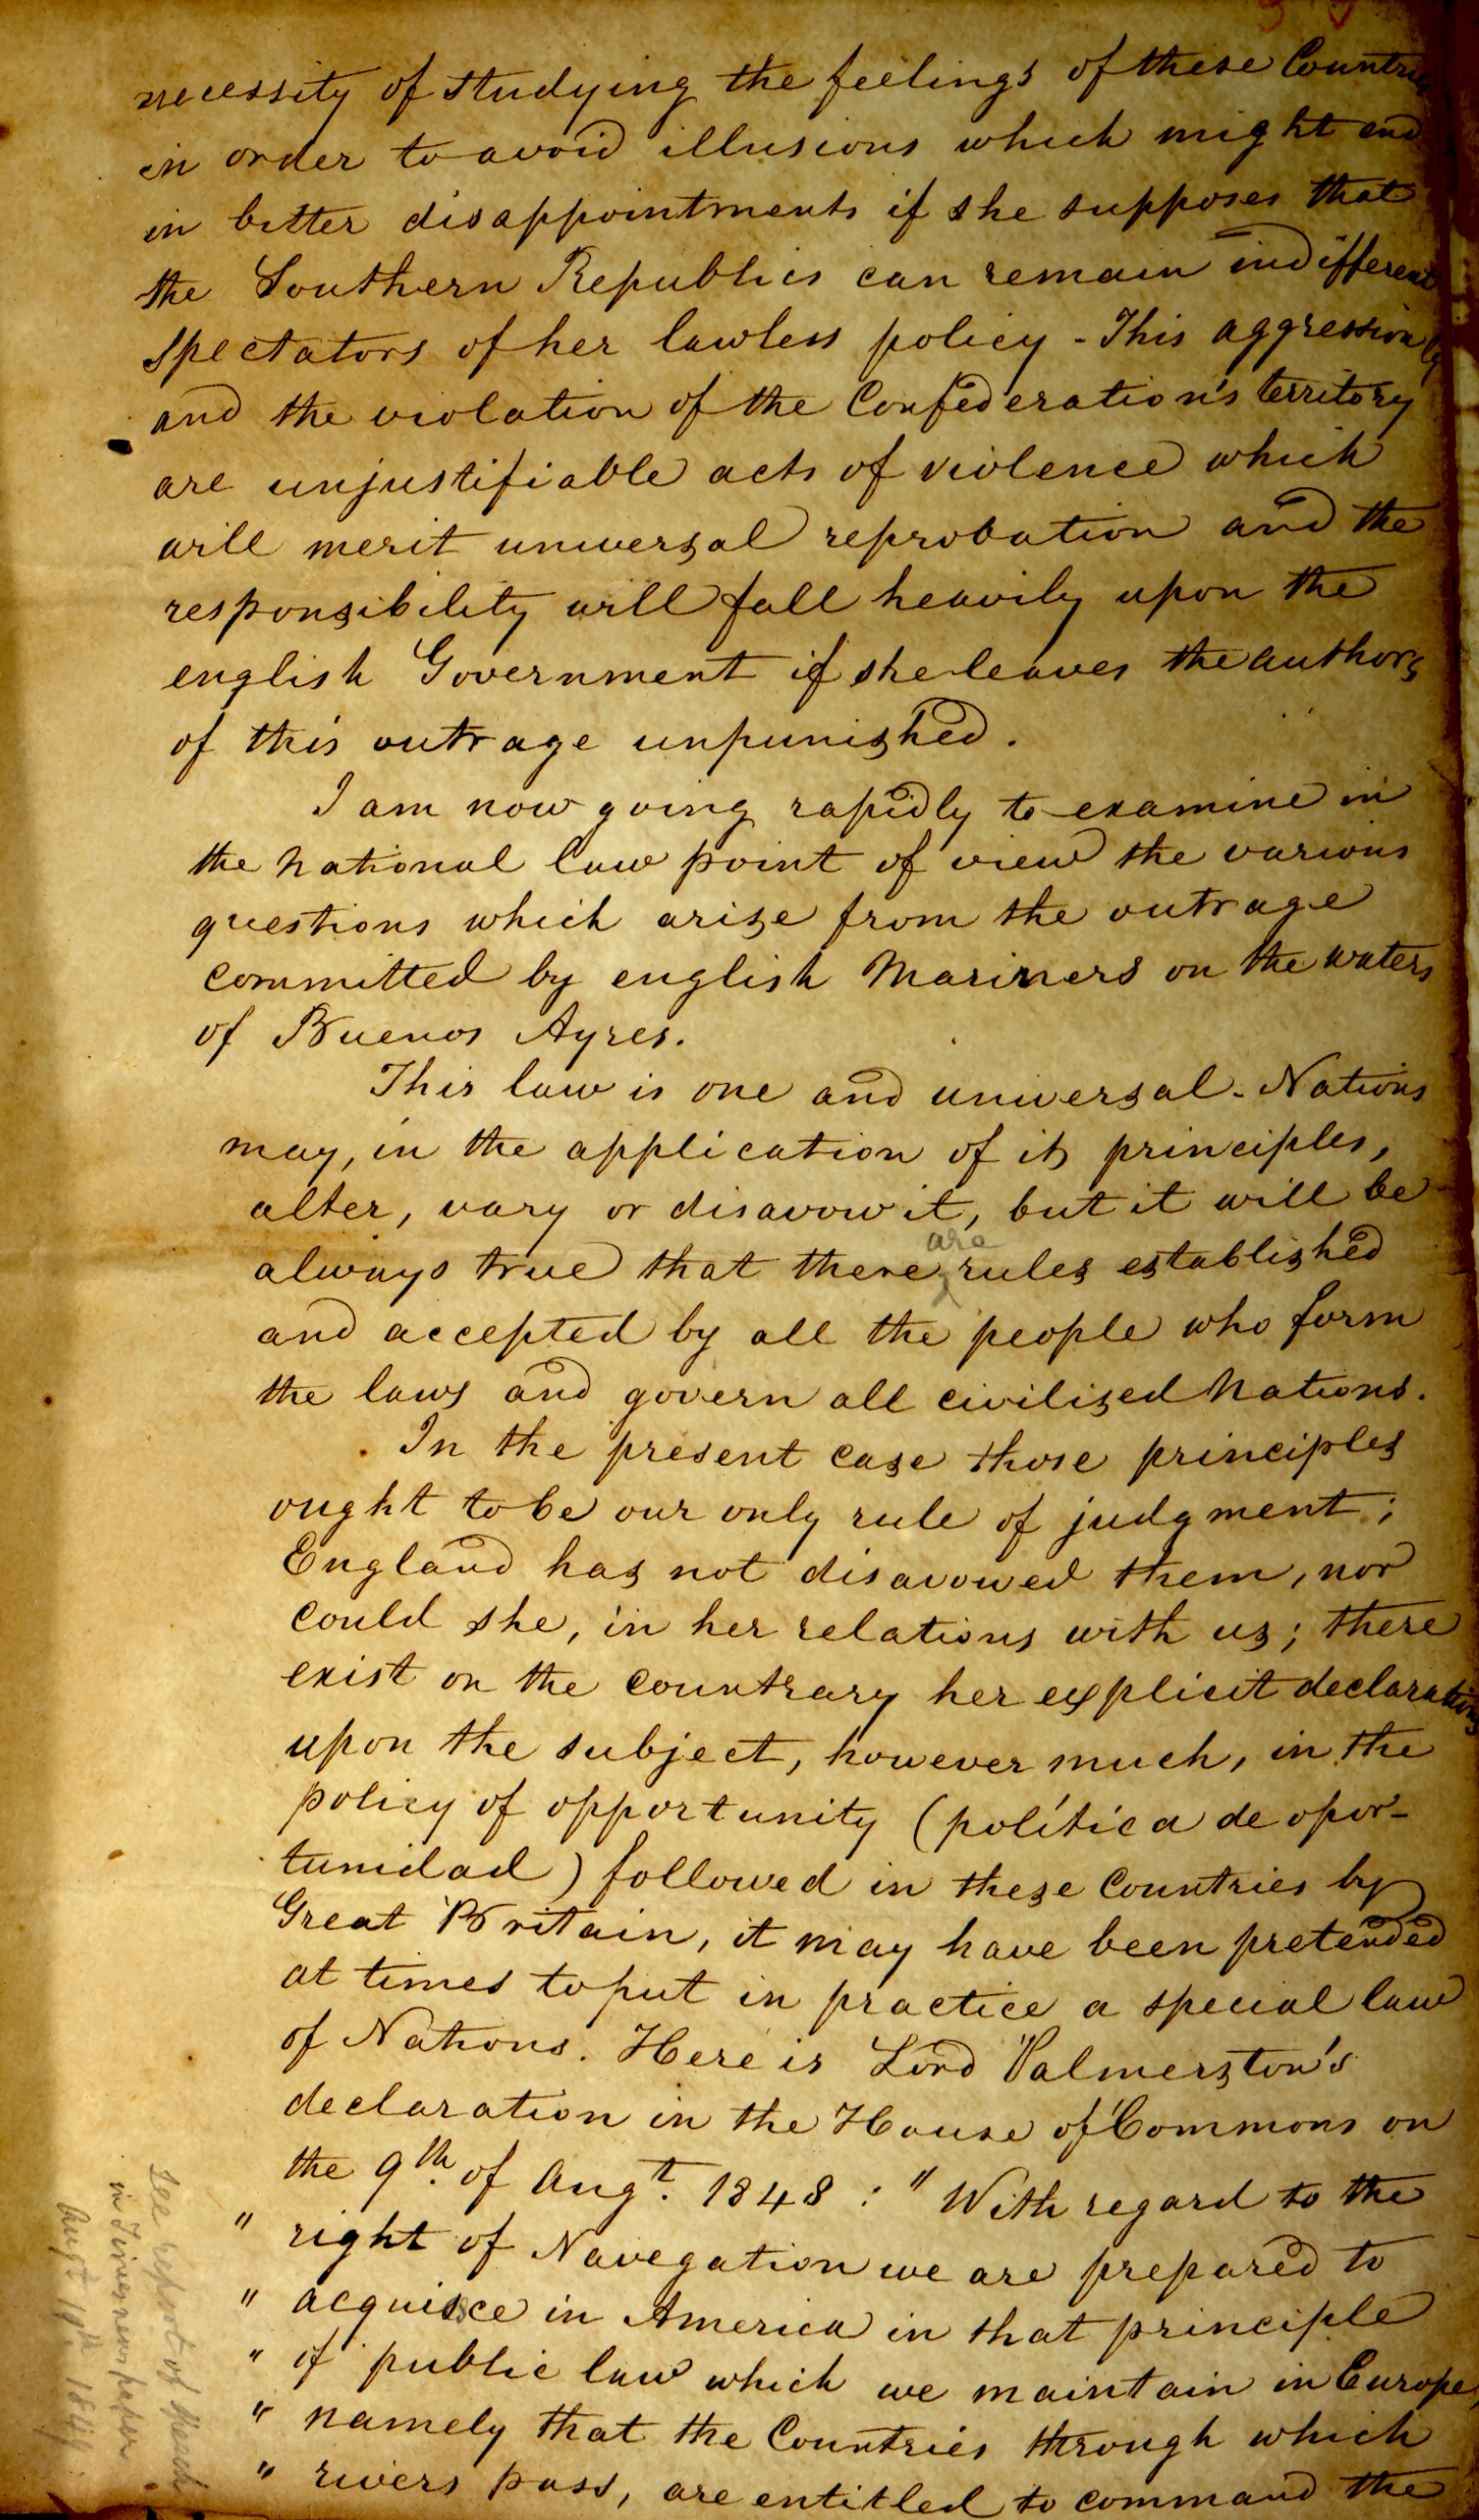 necessity of studying the feelings of these Countries
in order to avoid illusions which might end
in bitter disappointments if she supposes that
the Southern Republics can remain indifferent
spectators of her lawless policy - This aggression
and the violation of the Confederation's territory
are unjustifiable acts of violence which
will merit universal reprobation and the
responsibility will fall heavily upon the
english Government if she leaves the authors
of this outrage unpunished.
I am now going rapidly to examine in
the national law point of view the various
questions which arise from the outrage
committed by english Mariners on the waters
of Buenos Ayres.
This law is one and universal - Nations
may, in the application of its principles,
alter, vary or disavow it, but it will be
always true that there are rules established
and accepted by all the people who form
the laws and govern all civilized Nations.
In the present case those principles
ought to be our only rule of judgment;
England has not disavowed them, nor
could she, in her relations with us; there
exist on the countrary her explicit declarations
upon the subject, however much, in the
policy of opportunity (política de opor-
tunidad) followed in these Countries by
Great Britain, it may have been pretended
at times to put in practice a special law
of Nations. Here is Lord Palmerston's
declaration in the House of Commons on
the 9th. of Augt. 1848 : "With regard to the
" right of Navegation we are prepared to
" acquiesce in America in that principle
" of public law which we maintain in Europe
" namely that the Countries through which
" rivers pass, are entitled to command the
See report of
in Times newspaper
Augt 10th